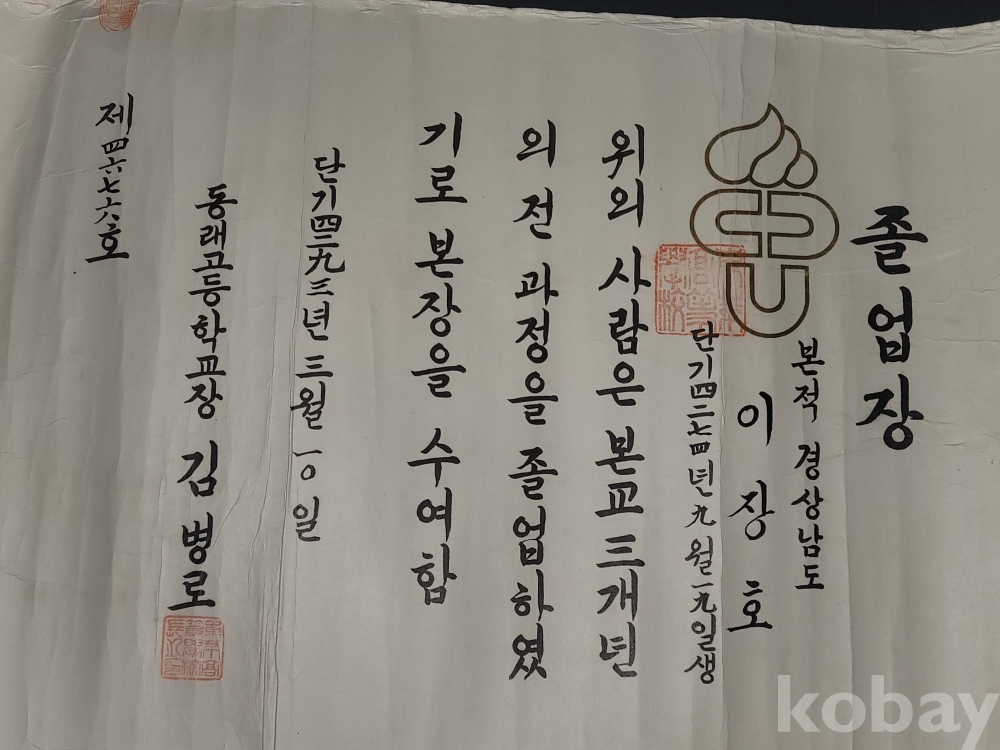 졸업장
본적 경상남도
이장호
단기四二七四년九월一九일생
위의 사람은 본교 三개년
의 전 과정을 졸업하였
기로 본장을 수여함
단기四二九三년 三월 一〇일
동래고등학교장 김병로
제四六七六호
kobay